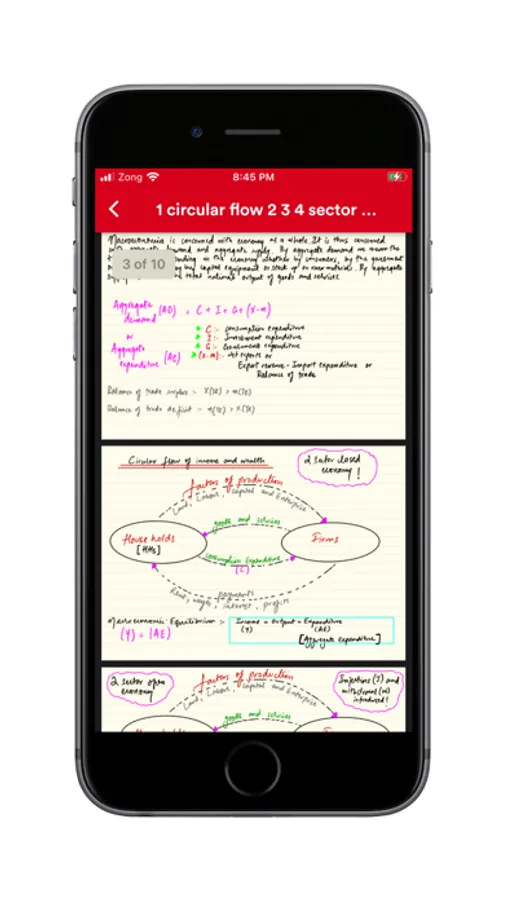 Zong
8:45 PM
1 circular flow 2 3 4 sector ...
Macroeconomics is concerned with economy as a whole. It is thus concerned
3 of 10
demand and aggregate supply. By aggregate demand we mean the
in the economy whether by consumers, by the government
capital equipment or stock of raw materials. By aggregate
total national output of goods and services
Aggregate demand (AD) = C + I + G + (X-m)
or
Aggregate expenditure (AE)
C :- consumption expenditure
I :- Investment expenditure
G :- Government expenditure
(X-m) :- Net exports or
Export revenue - Import expenditure or
Balance of trade
Balance of trade surplus :-
Balance of trade deficit :-
Circular flow of income and wealth
2 sector closed economy !
factors of production
Land, Labour, capital and Enterprise
goods and services
House holds
[HHs]
Firms
consumption Expenditure
(C)
payments
Rent, wages, interest, profits
Macroeconomic Equilibrium :-
(Y) = (AE)
Income = Output = Expenditure
(Y) (AE)
[Aggregate Expenditure]
2 sector open economy
factors of production
Land, Labour, capital and Enterprise
Injections (J) and
introduced !
goods and services